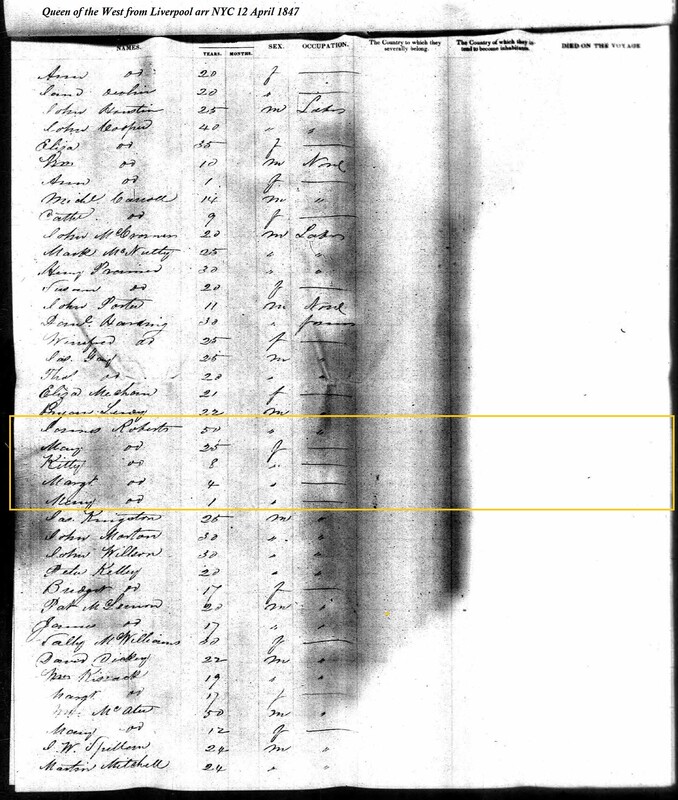 Queen of the West from Liverpool arr NYC 12 April 1847
NAMES. YEARS. MONTHS. SEX. OCCUPATION. The Country to which they severally belong. The Country of which they intend to become inhabitants. DIED ON THE VOYAGE
Ann do 20 f
20 "
John 25 m Labr
John Cooper 40 " "
Eliza do 35 f
Wm do 10 m None
Ann do 1 f
Michl Carroll 14 m "
Cathe do 9 f
John McCrossen 20 m Labr
Mark McNulty 25 " "
Henry 30 " "
Susan do 20 f
John Porter 11 m None
Danl. Harding 30 "
Winifred do 25 f
Jas. 25 m "
Thos do 20 " "
Eliza 21 f
22 m "
James Roberts 50 " "
Mary do 25 f
Kitty do 8 "
Margt do 4 "
do 1 "
Jas. Kingston 25 m "
John Morton 30 " "
John Willson 30 " "
Peter Kelley 20 " "
Bridget do 17 f
Pat 20 m "
do 17 " "
Sally McWilliams 30 f
David Dickey 22 m "
Wm 19 " "
Margt do 17 f
50 m "
Mary do 12 f
24 m "
Martin Mitchell 24 " "